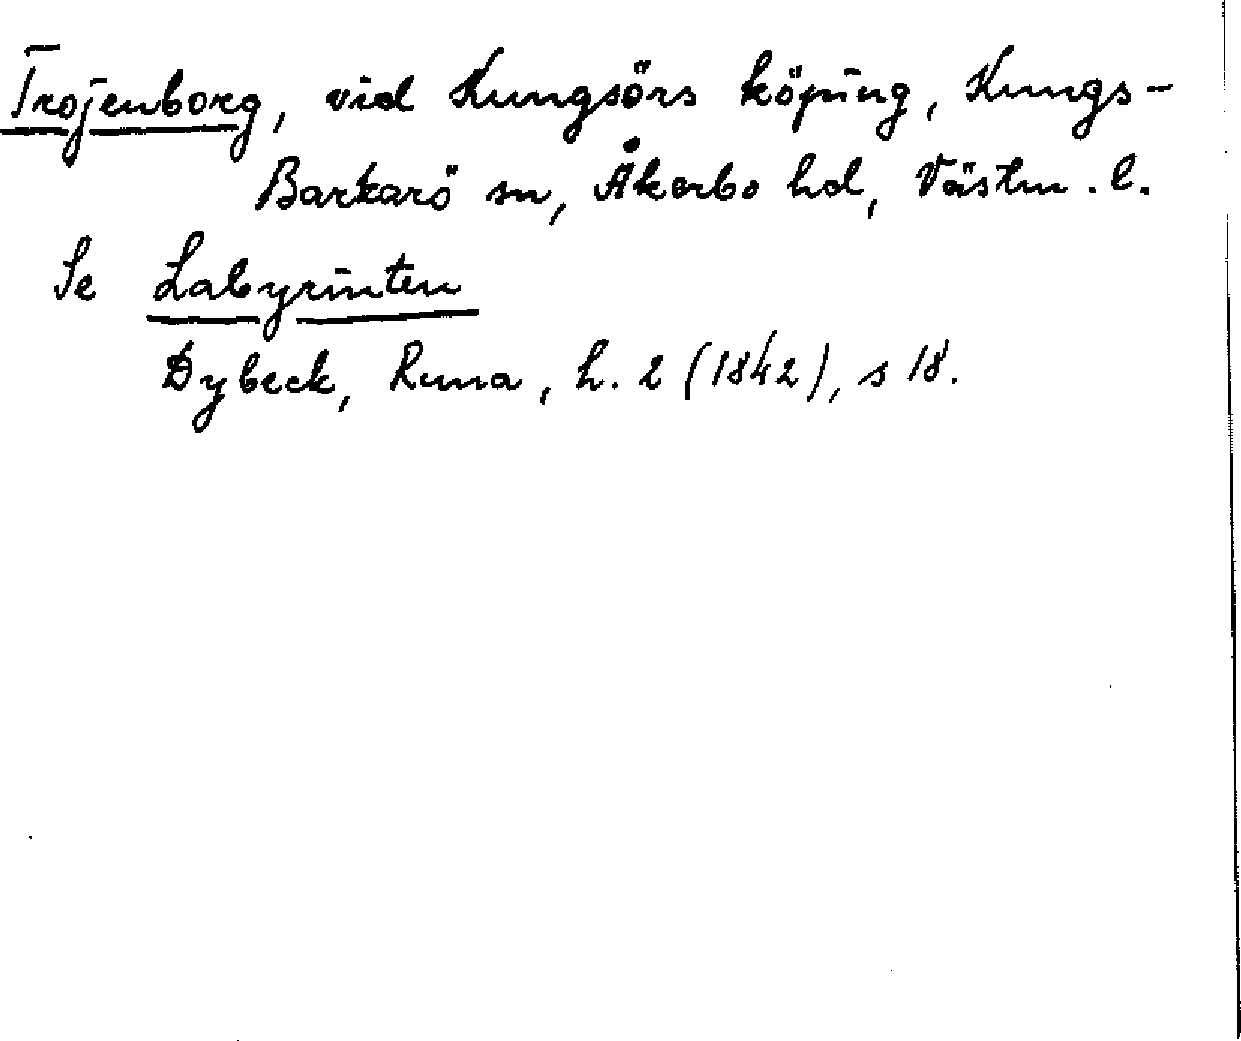 Trojenborg, vid Kungsörs köping, Kungs-
Barkarö sn, Åkerbo hd, Västm. l.
Se Labyrinten
Dybeck, Runa, h. 2 (1842), s 18.